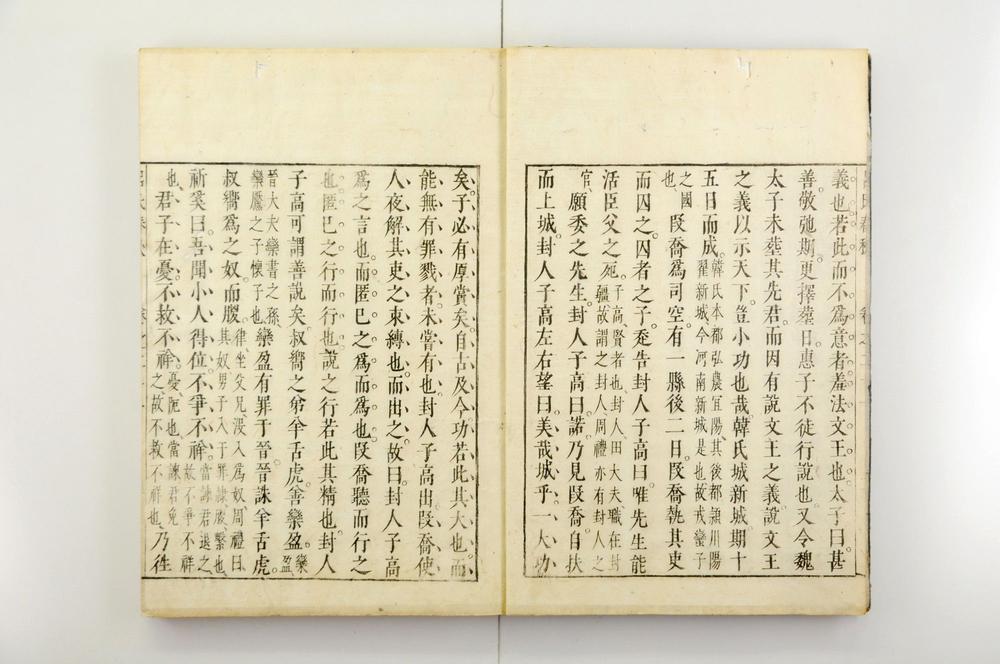 義也若此而不爲意者羞法文王也太子曰甚
善敬弛期更擇葬日惠子不徒行說也又令魏
太子未葬其先君而因有說文王之義說文王
之義以示天下豈小功也哉韓氏城新城期十
五日而成韓氏本都弘農宜陽其後都潁川陽
翟新城今河南新城是也故戎蠻子
之國段喬爲司空有一縣後二日段喬執其吏
而囚之囚者之子走告封人子高曰唯先生能
活臣父之死子高賢者也封人田大夫職在封
疆故謂之封人周禮亦有封人之
官願委之先生封人子高曰諾乃見段喬自扶
而上城封人子高左右望曰美哉城乎一大功
矣子必有厚賞矣自古及今功若此其大也而
能無有罪戮者未嘗有也封人子高出段喬使
人夜解其吏之束縛也而出之故曰封人子高
爲之言也而匿已之爲而爲也段喬聽而行之
也匿已之行而行也說之行若此其精也封人
子高可謂善說矣叔嚮之弟羊舌虎善欒盈欒
盈
晉大夫欒書之孫
欒黶之子懷子也欒盈有罪于晉晉誅羊舌虎
叔嚮爲之奴而朡律坐父兄沒入爲奴周禮曰
其奴男子入于罪隷朡繫也
祈奚曰吾聞小人得位不爭不祥當諫君退之
故不爭不祥
也君子在憂不救不祥憂阨也當諫君免
之故不救不祥也乃往